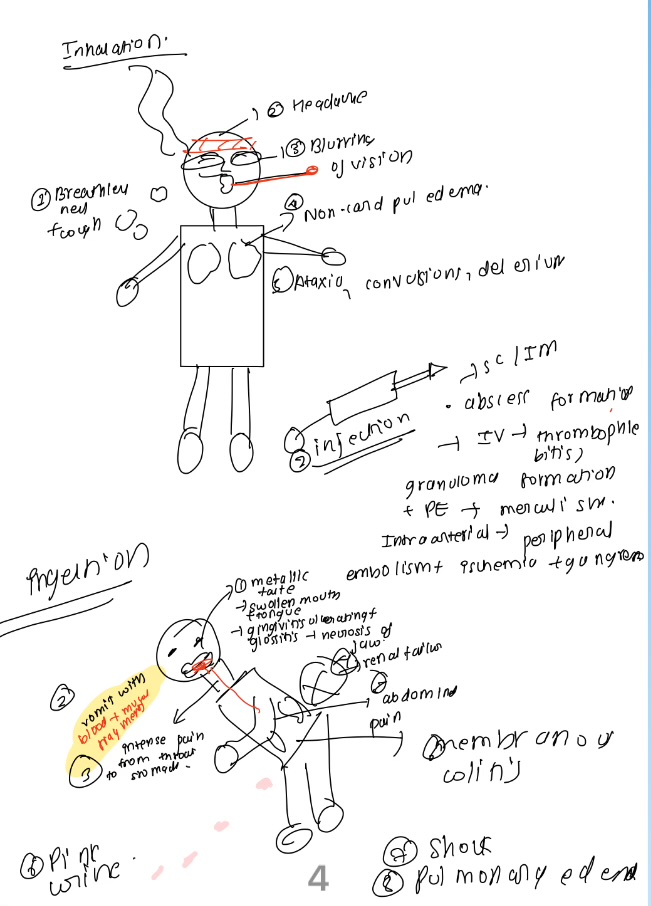 Inhalation.
② Headache
③ Blurring
of vision
① Breathley
ney
+cough
④ Non-card pul edema.
⑤ Ataxia, convusions, delerium
→ SC/IM
. abscess formation
② injection
→ IV → thrombophle
bitis,
granuloma formation
+ PE → mercuri sm.
Intra arterial → peripheral
embolism + ischemia + gangrene
Ingestion
① metallic
taste
→ swollen mouth
+ tongue
→ gingivitis ulcerating +
glossitis → necrosis of
jaw.
renal failure
②
vomit with
blood +
grey
③
intense pain
from throat
to stomach.
abdominal
pain
membranous
colitis
⑥ Pink
urine.
⑦ Shock
⑧ pulmonary edema
4